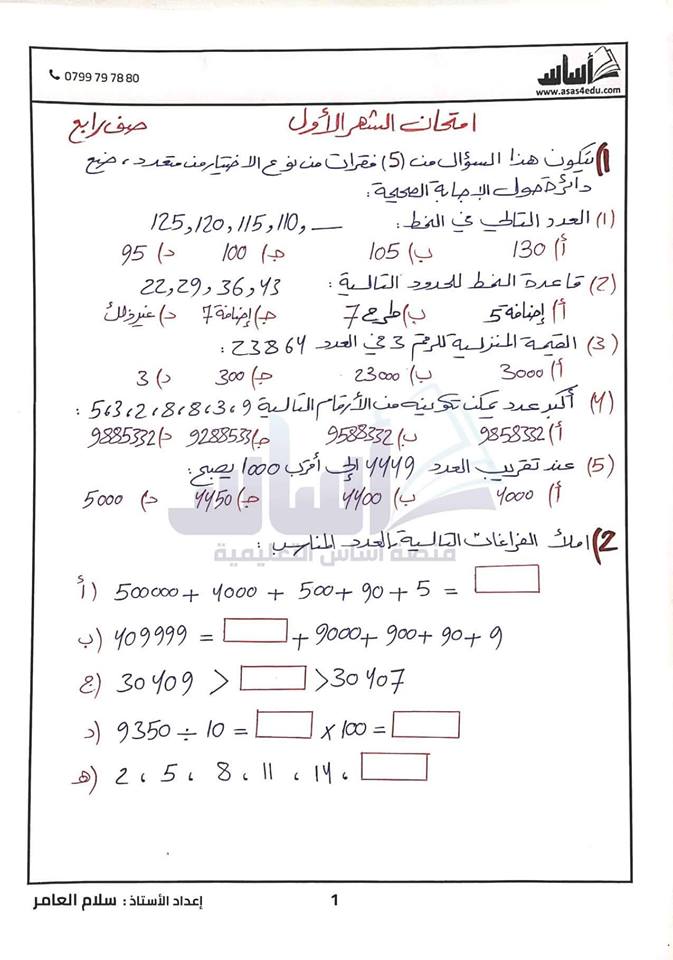 أساس
www.asas4edu.com
0799 79 78 80
امتحان الشهر الأول صف رابع
1) يتكون هذا السؤال من (5) فقرات من نوع الاختيار من متعدد، ضع
دائرة حول الإجابة الصحيحة:
(1) العدد التالي في النمط: 125, 120, 115, 110, __
أ) 130 ب) 105 ج) 100 د) 95
(2) قاعدة النمط للحدود التالية: 22, 29, 36, 43
أ) إضافة 5 ب) طرح 7 ج) إضافة 7 د) غير ذلك
(3) القيمة المنزلية للرقم 3 في العدد 23864:
أ) 3000 ب) 23000 ج) 300 د) 3
(4) أكبر عدد يمكن تكوينه من الأرقام التالية 5،3،2،8،8،3،9:
أ) 9858332 ب) 9588332 ج) 9288533 د) 9885332
(5) عند تقريب العدد 4449 إلى أقرب 1000 يصبح:
أ) 4000 ب) 4400 ج) 4450 د) 5000
أساس
منصة أساس التعليمية
2) املأ الفراغات التالية بالعدد المناسب:
أ) 500000 + 4000 + 500 + 90 + 5 =
ب) 409999 = + 9000 + 900 + 90 + 9
ج) 30409 > > 30407
د) 9350 ÷ 10 = × 100 =
هـ) 2 ، 5 ، 8 ، 11 ، 14 ،
إعداد الأستاذ : سلام العامر
1